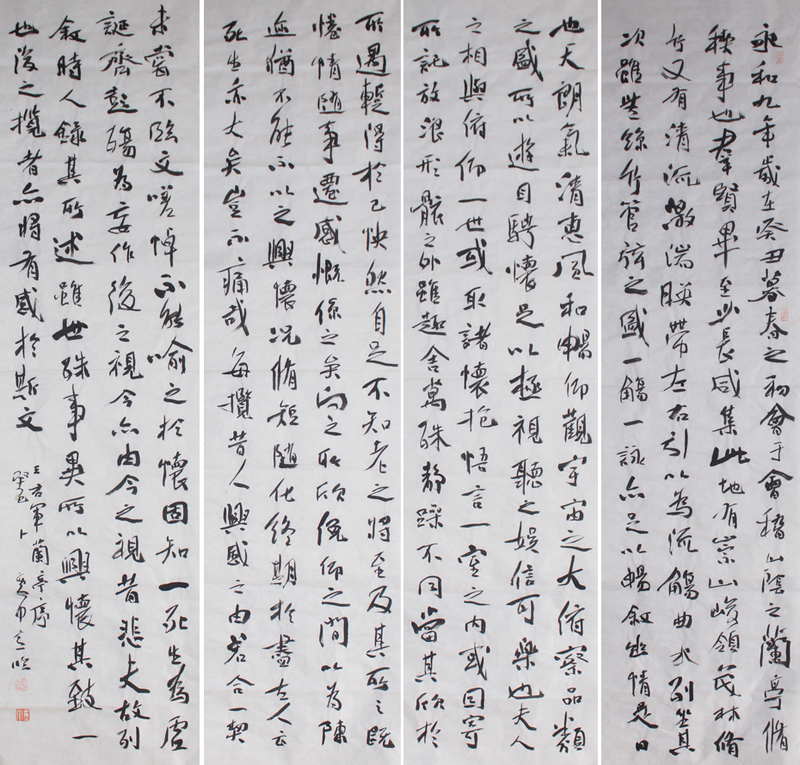 永和九年歲在癸丑暮春之初會于會稽山陰之蘭亭脩
稧事也羣賢畢至少長咸集此地有崇山峻領茂林脩
竹又有清流激湍暎帶左右引以為流觴曲水列坐其
次雖無絲竹管弦之盛一觴一詠亦足以暢敘幽情是日
也天朗氣清惠風和暢仰觀宇宙之大俯察品類
之盛所以遊目騁懷足以極視聽之娛信可樂也夫人
之相與俯仰一世或取諸懷抱悟言一室之內或因寄
所託放浪形骸之外雖趣舍萬殊靜躁不同當其欣於
所遇暫得於己怏然自足不知老之將至及其所之既
惓情隨事遷感慨係之矣向之所欣俛仰之間以為陳
迹猶不能不以之興懷況脩短隨化終期於盡古人云
死生亦大矣豈不痛哉每攬昔人興感之由若合一契
未嘗不臨文嗟悼不能喻之於懷固知一死生為虛
誕齊彭殤為妄作後之視今亦由今之視昔悲夫故列
敘時人錄其所述雖世殊事異所以興懷其致一
也後之攬者亦將有感於斯文
王右軍蘭亭序
癸巳